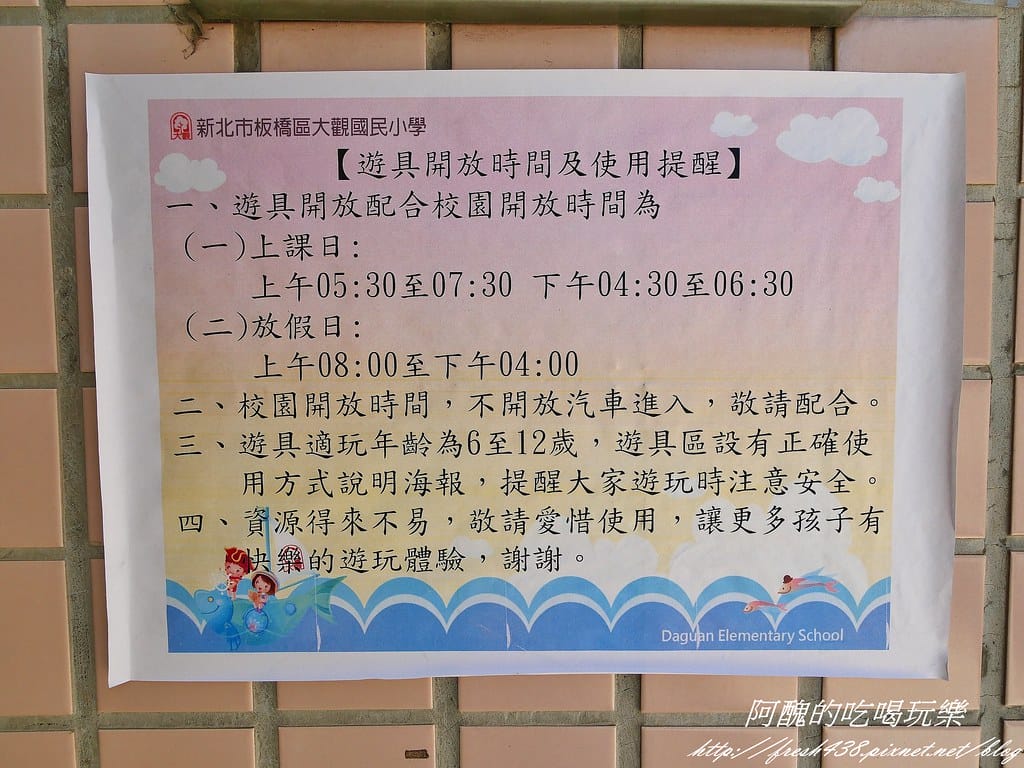 新北市板橋區大觀國民小學
【遊具開放時間及使用提醒】
一、遊具開放配合校園開放時間為
(一)上課日:
上午05:30至07:30 下午04:30至06:30
(二)放假日:
上午08:00至下午04:00
二、校園開放時間，不開放汽車進入，敬請配合。
三、遊具適玩年齡為6至12歲，遊具區設有正確使
用方式說明海報，提醒大家遊玩時注意安全。
四、資源得來不易，敬請愛惜使用，讓更多孩子有
快樂的遊玩體驗，謝謝。
Daguan Elementary School
阿醜的吃喝玩樂
http://fresh438.pixnet.net/blog